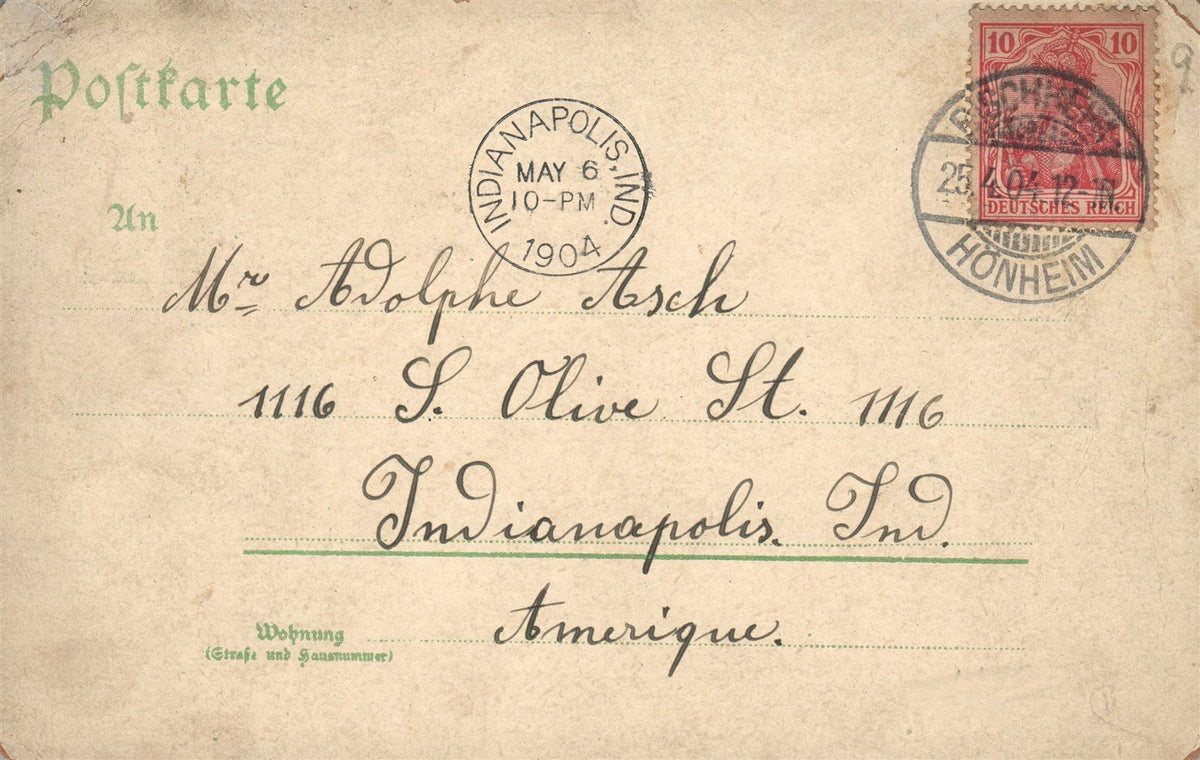 Postkarte
10 10
DEUTSCHES REICH
BISCHHEIM
25.4.04.12-1N.
HÖNHEIM
9
INDIANAPOLIS, IND.
MAY 6
10-PM
1904
An
Mr Adolphe Asch
1116 S. Olive St. 1116
Indianapolis. Ind.
Amerique.
Wohnung
(Straße und Hausnummer)